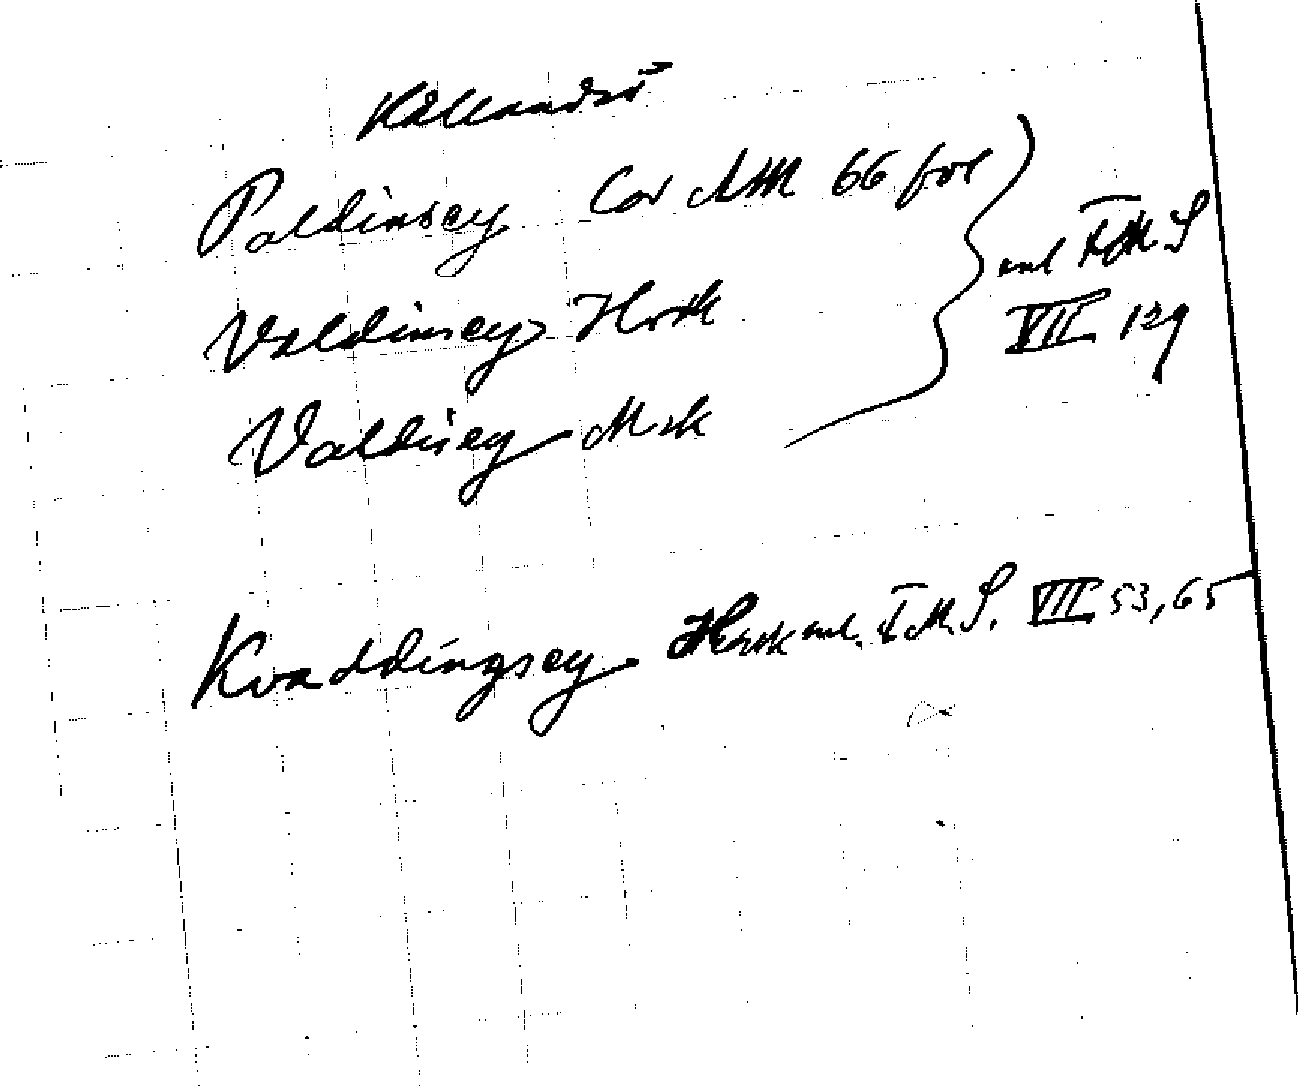 Kållandsö
Poldinsey Cod AM 66 fol
Valdinsey Hrok
Valdisey Msk
enl F.M.S
VII 129
Kvaldingsey Hrsk enl. F.M.S. VII 53, 65